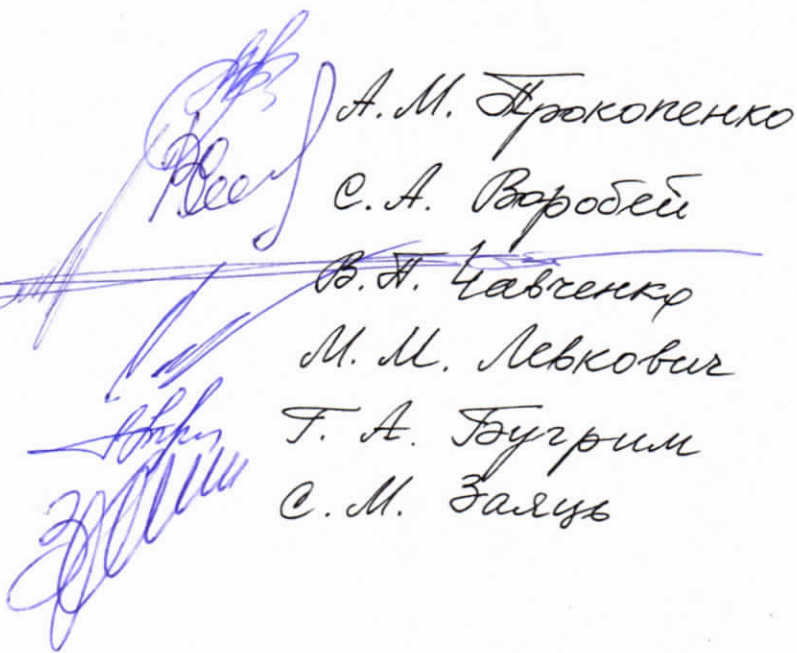 А.М. Прокопенко
С.А. Воробей
В.П. Чавченко
М.М. Левкович
Г.А. Бугрим
С.М. Заяць